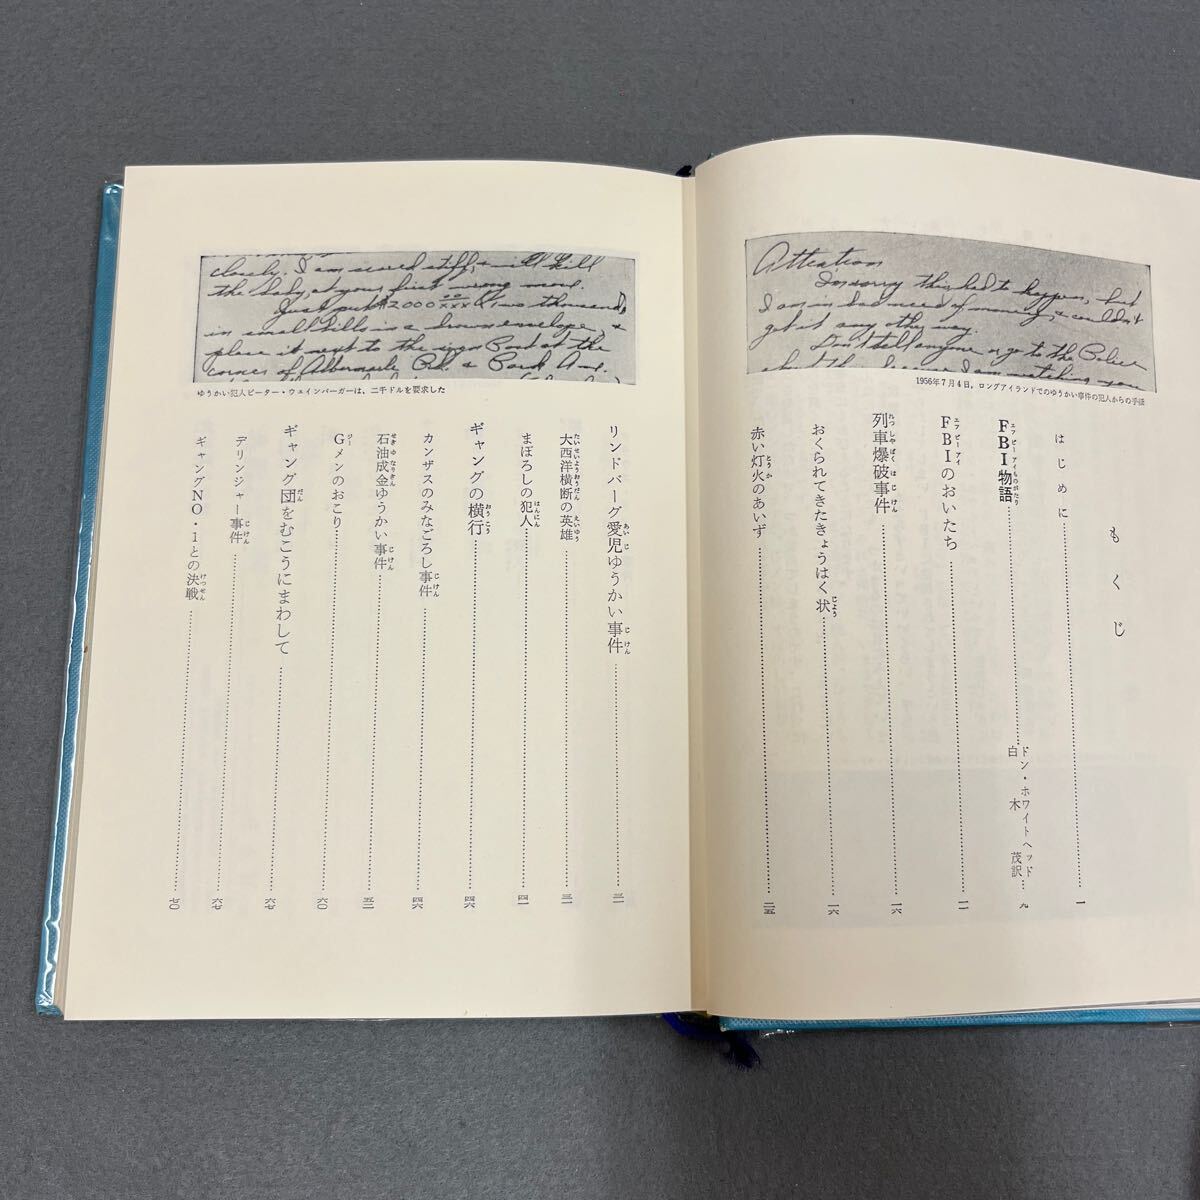 Attention
I'm sorry this had to happen, but
I am in bad need of money, & couldn't
get it any other way.
Don't tell anyone or go to the Police
about this, because I am watching you
1956年7月4日，ロングアイランドでのゆうかい事件の犯人からの手紙
もくじ
はじめに……一
FBI物語……ドン・ホワイトヘッド 白木 茂訳……九
FBIのおいたち……一一
列車爆破事件……一六
おくられてきたきょうはく状……一六
赤い灯火のあいず……二五
closely. I am scared stiff, & will kill
the baby, at your first wrong move.
Just put $2000 00/xxx (Two thousand)
in small bills in a brown envelope, &
place it next to the sign Post at the
corner of Albemarle Rd. & Park Ave.
ゆうかい犯人ピーター・ウェインバーガーは、二千ドルを要求した
リンドバーグ愛児ゆうかい事件……三一
大西洋横断の英雄……三一
まぼろしの犯人……四一
ギャングの横行……四六
カンザスのみなごろし事件……四六
石油成金ゆうかい事件……五二
Gメンのおこり……六〇
ギャング団をむこうにまわして……六七
デリンジャー事件……六七
ギャングNO・1との決戦……七〇